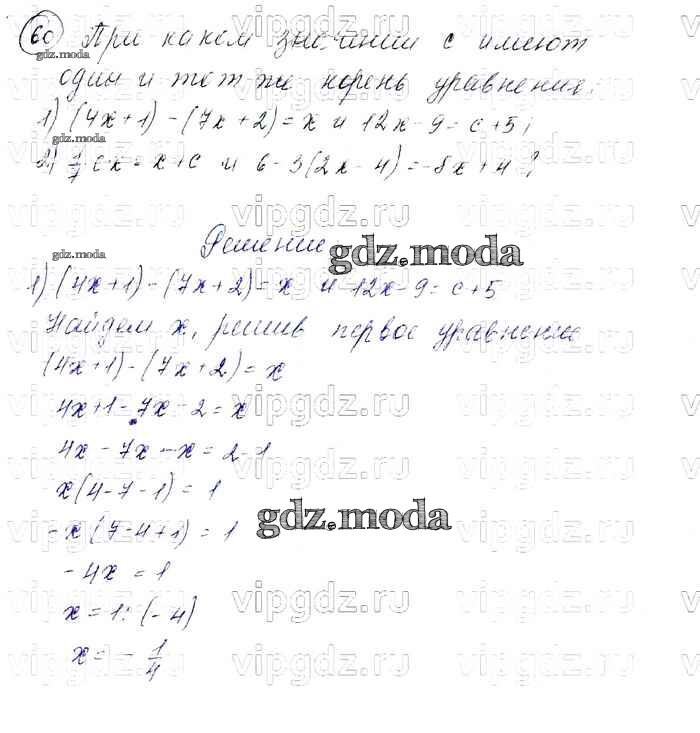 60 При каком значении с имеют
один и тот же корень уравнения:
1) (4x+1)-(7x+2)=x и 12x-9=c+5;
2) 1/7 cx = x+c и 6-3(2x-4)=-8x+4?
Решение
1) (4x+1)-(7x+2)=x и 12x-9=c+5
Найдем x, решив первое уравнение
(4x+1)-(7x+2)=x
4x+1-7x-2=x
4x-7x-x=2-1
x(4-7-1)=1
-x(7-4+1)=1
-4x=1
x=1:(-4)
x=-1/4
gdz.moda
gdz.moda
gdz.moda
gdz.moda
gdz.moda
vipgdz.ru